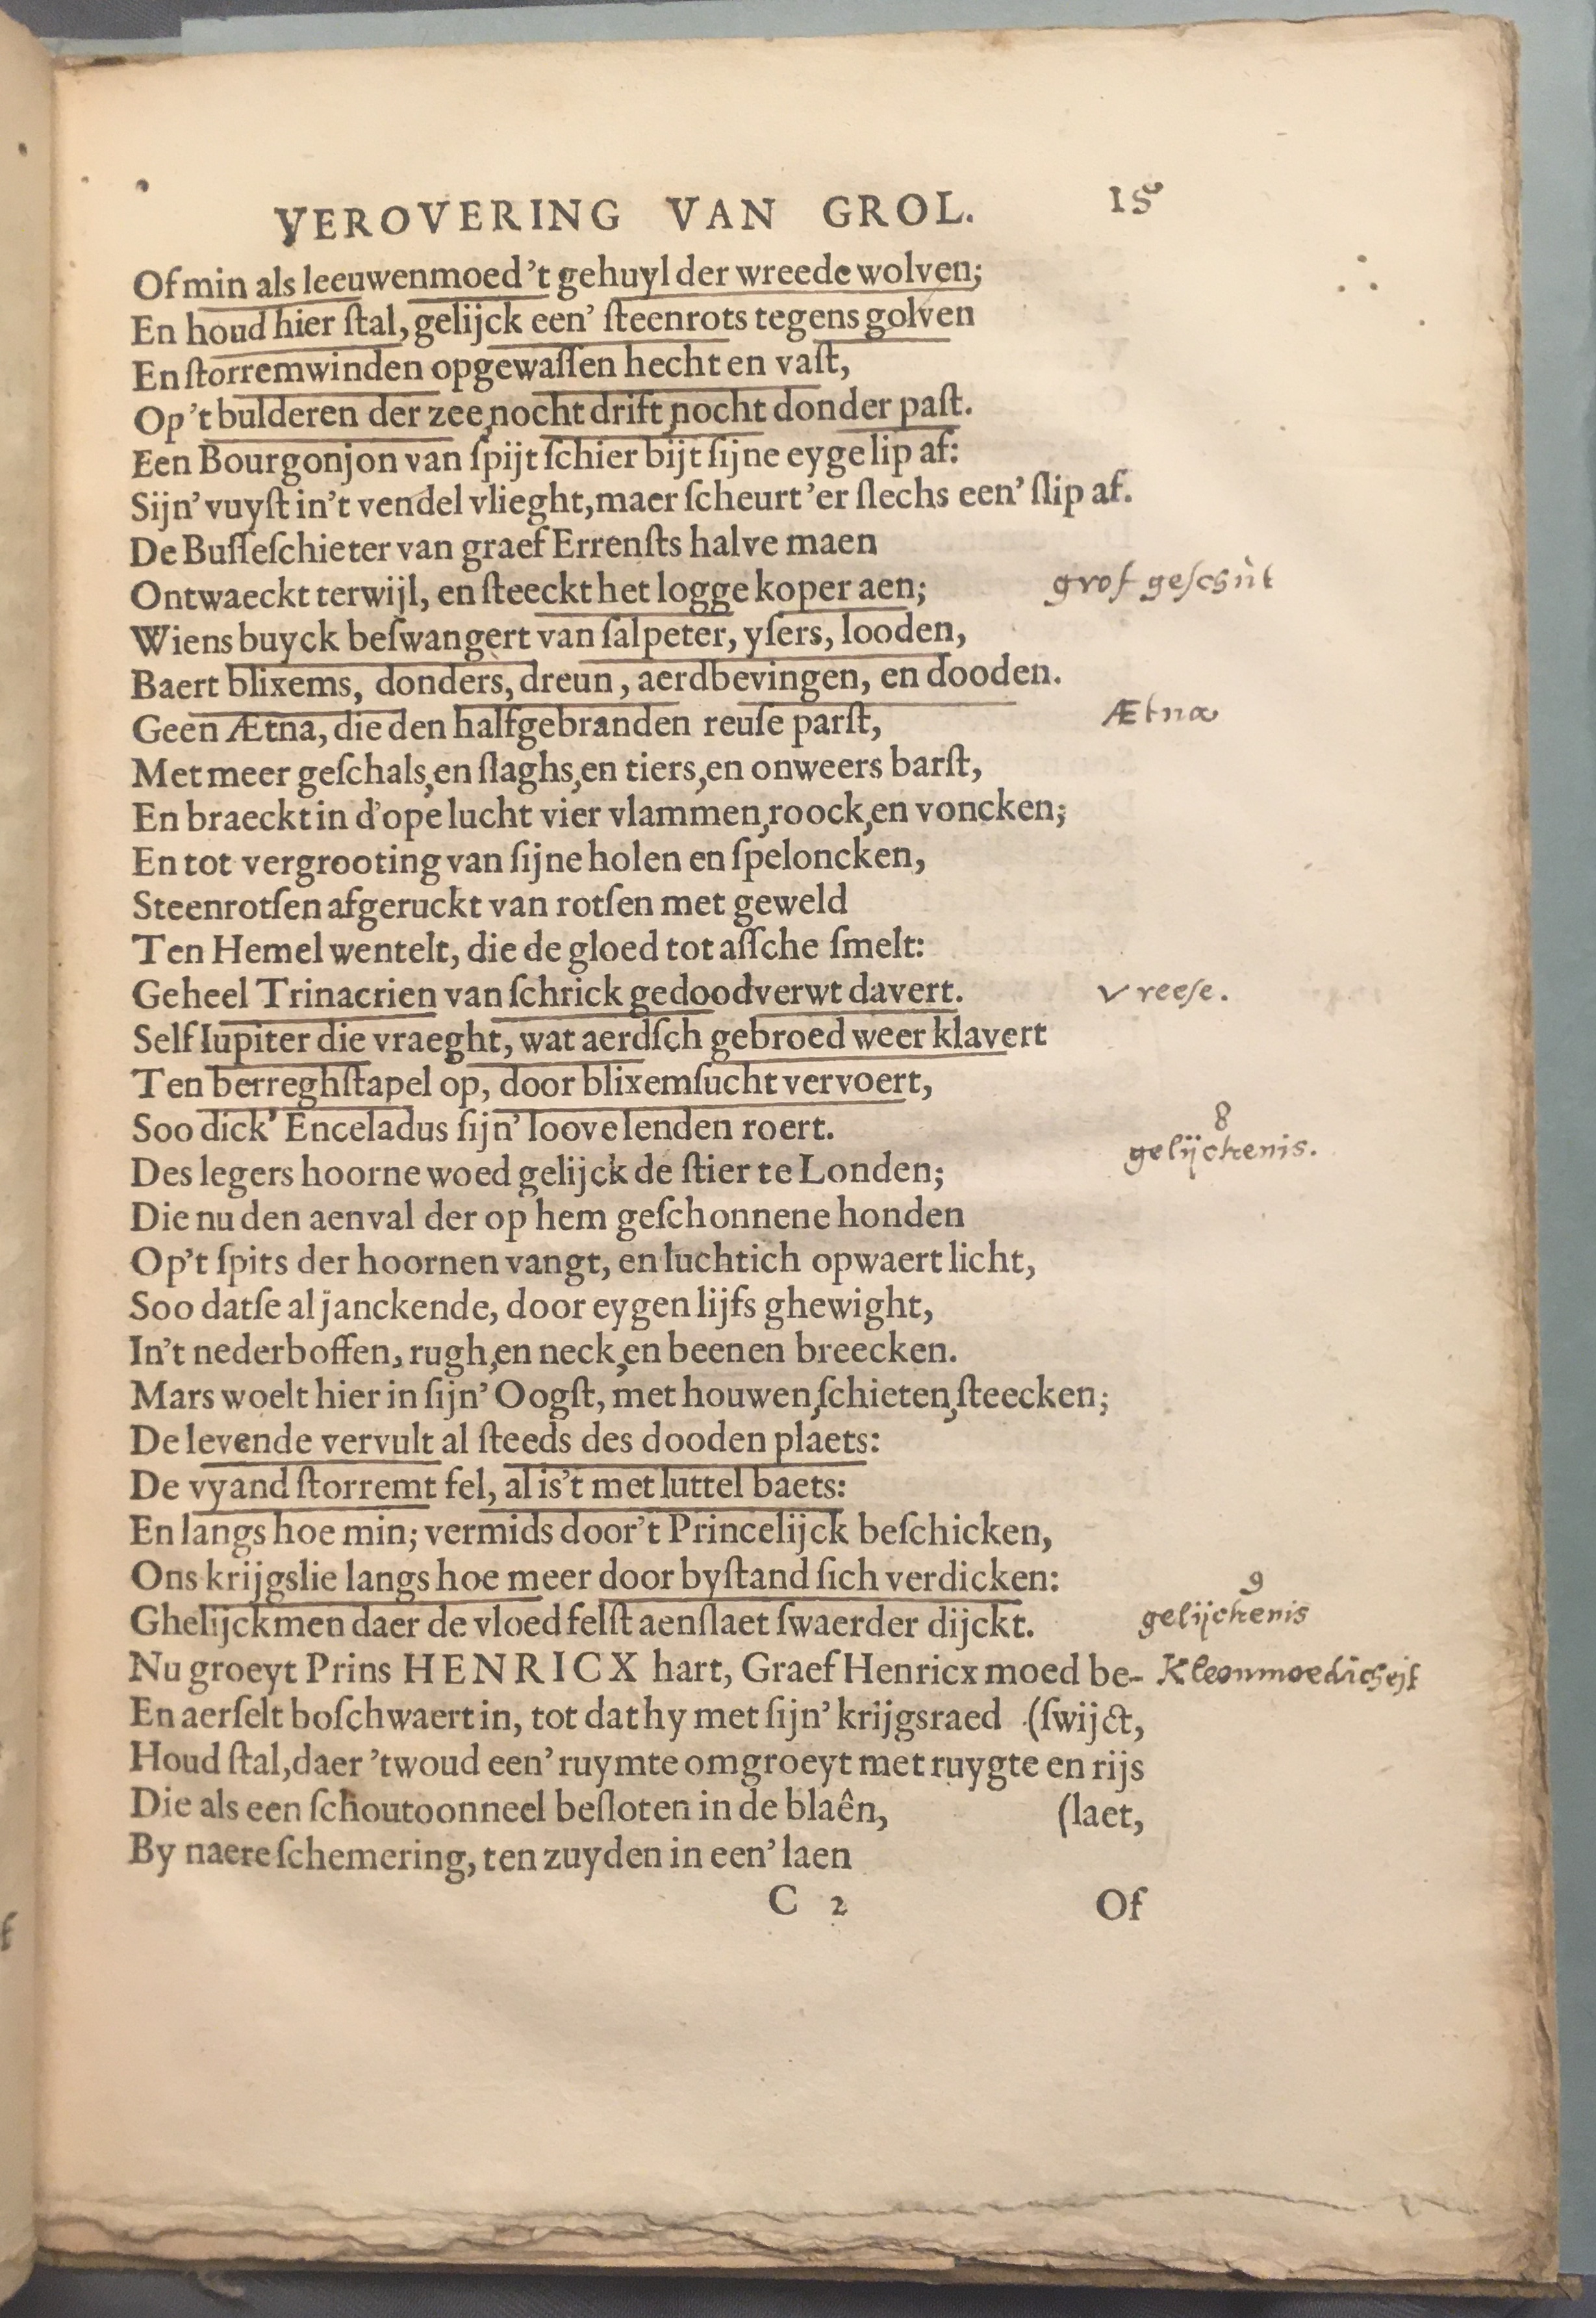 VEROVERING VAN GROL. 15
Of min als leeuwenmoed 't gehuyl der wreede wolven;
En houd hier ſtal, gelijck een' ſteenrots tegens golven
En ſtorremwinden opgewaſſen hecht en vaſt,
Op 't bulderen der zee, nocht drift, nocht donder paſt.
Een Bourgonjon van ſpijt ſchier bijt ſijne eyge lip af:
Sijn' vuyſt in't vendel vlieght, maer ſcheurt 'er ſlechs een' ſlip af.
De Buſſeſchieter van graef Errenſts halve maen
Ontwaeckt terwijl, en ſteeckt het logge koper aen; grof geſcsùt
Wiens buyck beſwangert van ſalpeter, yſers, looden,
Baert blixems, donders, dreun, aerdbevingen, en dooden.
Geen Ætna, die den halfgebranden reuſe parſt, Ætna
Met meer geſchals, en ſlaghs, en tiers, en onweers barſt,
En braeckt in d'ope lucht vier vlammen, roock, en voncken;
En tot vergrooting van ſijne holen en ſpeloncken,
Steenrotſen afgeruckt van rotſen met geweld
Ten Hemel wentelt, die de gloed tot aſſche ſmelt:
Geheel Trinacrien van ſchrick gedoodverwt davert. vreeſe.
Self Iupiter die vraeght, wat aerdſch gebroed weer klavert
Ten berreghſtapel op, door blixemſucht vervoert,
Soo dick' Enceladus ſijn' loove lenden roert. 8
Des legers hoorne woed gelijck de ſtier te Londen; gelijckenis.
Die nu den aenval der op hem geſchonnene honden
Op't ſpits der hoornen vangt, en luchtich opwaert licht,
Soo datſe al janckende, door eygen lijfs ghewight,
In't nederboffen, rugh, en neck, en beenen breecken.
Mars woelt hier in ſijn' Oogſt, met houwen, ſchieten, ſteecken;
De levende vervult al ſteeds des dooden plaets:
De vyand ſtorremt fel, al is't met luttel baets:
En langs hoe min; vermids door't Princelijck beſchicken,
Ons krijgslie langs hoe meer door byſtand ſich verdicken: 9
Ghelijckmen daer de vloed felſt aenſlaet ſwaerder dijckt. gelijckenis
Nu groeyt Prins HENRICX hart, Graef Henricx moed be-
En aerſelt boſchwaert in, tot dat hy met ſijn' krijgsraed (ſwijct,
Houd ſtal, daer 'twoud een' ruymte omgroeyt met ruygte en rijs
Die als een ſchoutoonneel beſloten in de blaên, (laet,
By naere ſchemering, ten zuyden in een' laen
C 2 Of